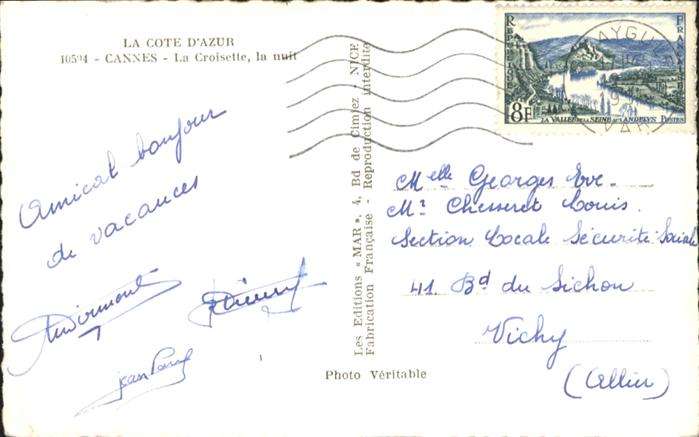 LA COTE D'AZUR
10594 - CANNES - La Croisette, la nuit
Amical bonjour
de vacances
Photo Véritable
Les Editions « MAR ». 4, Bd de Cimiez - NICE
Fabrication Française - Reproduction interdite
8F
LA VALLÉE DE LA SEINE AUX ANDELYS POSTES
VAR
Melle Georges Eve.
Mr Chesseret Louis.
Section Locale Sécurité Sociale
41 Bd du Sichon
Vichy
(Allier)